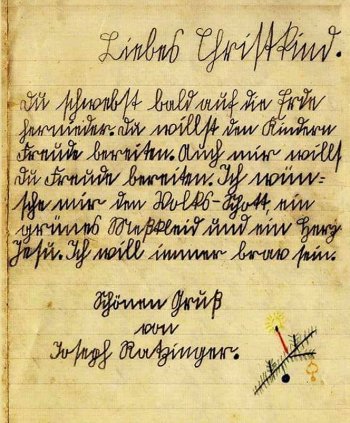 Liebes Christkind.
Du schwebst bald auf die Erde
hernieder. Da willst den Kindern
Freude bereiten. Auch mir willst
Du Freude bereiten. Ich wün-
sche mir den Volks-Schott, ein
grünes Meßkleid und ein Herz
Jesu. Ich will immer brav sein.
Schönen Gruß
von
Joseph Ratzinger.